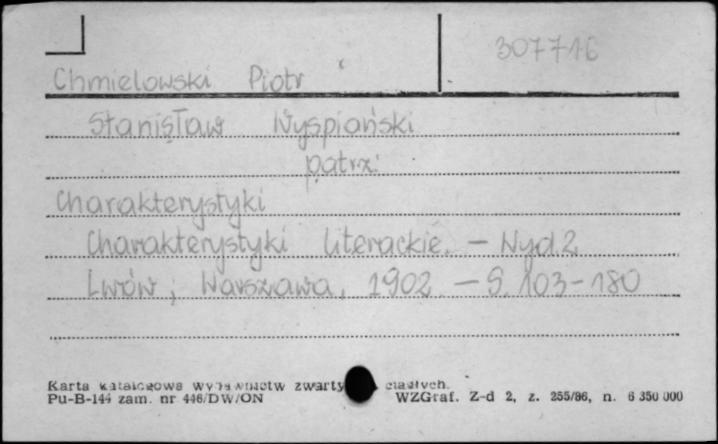 307716
Chmielowski Piotr
Stanisław Wyspiański
patrz:
Charakterystyki
Charakterystyki literackie. - Wyd. 2
Lwów; Warszawa, 1902. - S. 103-180
Karta katalogowa wydawnictw zwartych ciągłych.
Pu-B-144 zam. nr 446/DW/ON WZGraf. Z-d 2, z. 255/86, n. 6 350 000